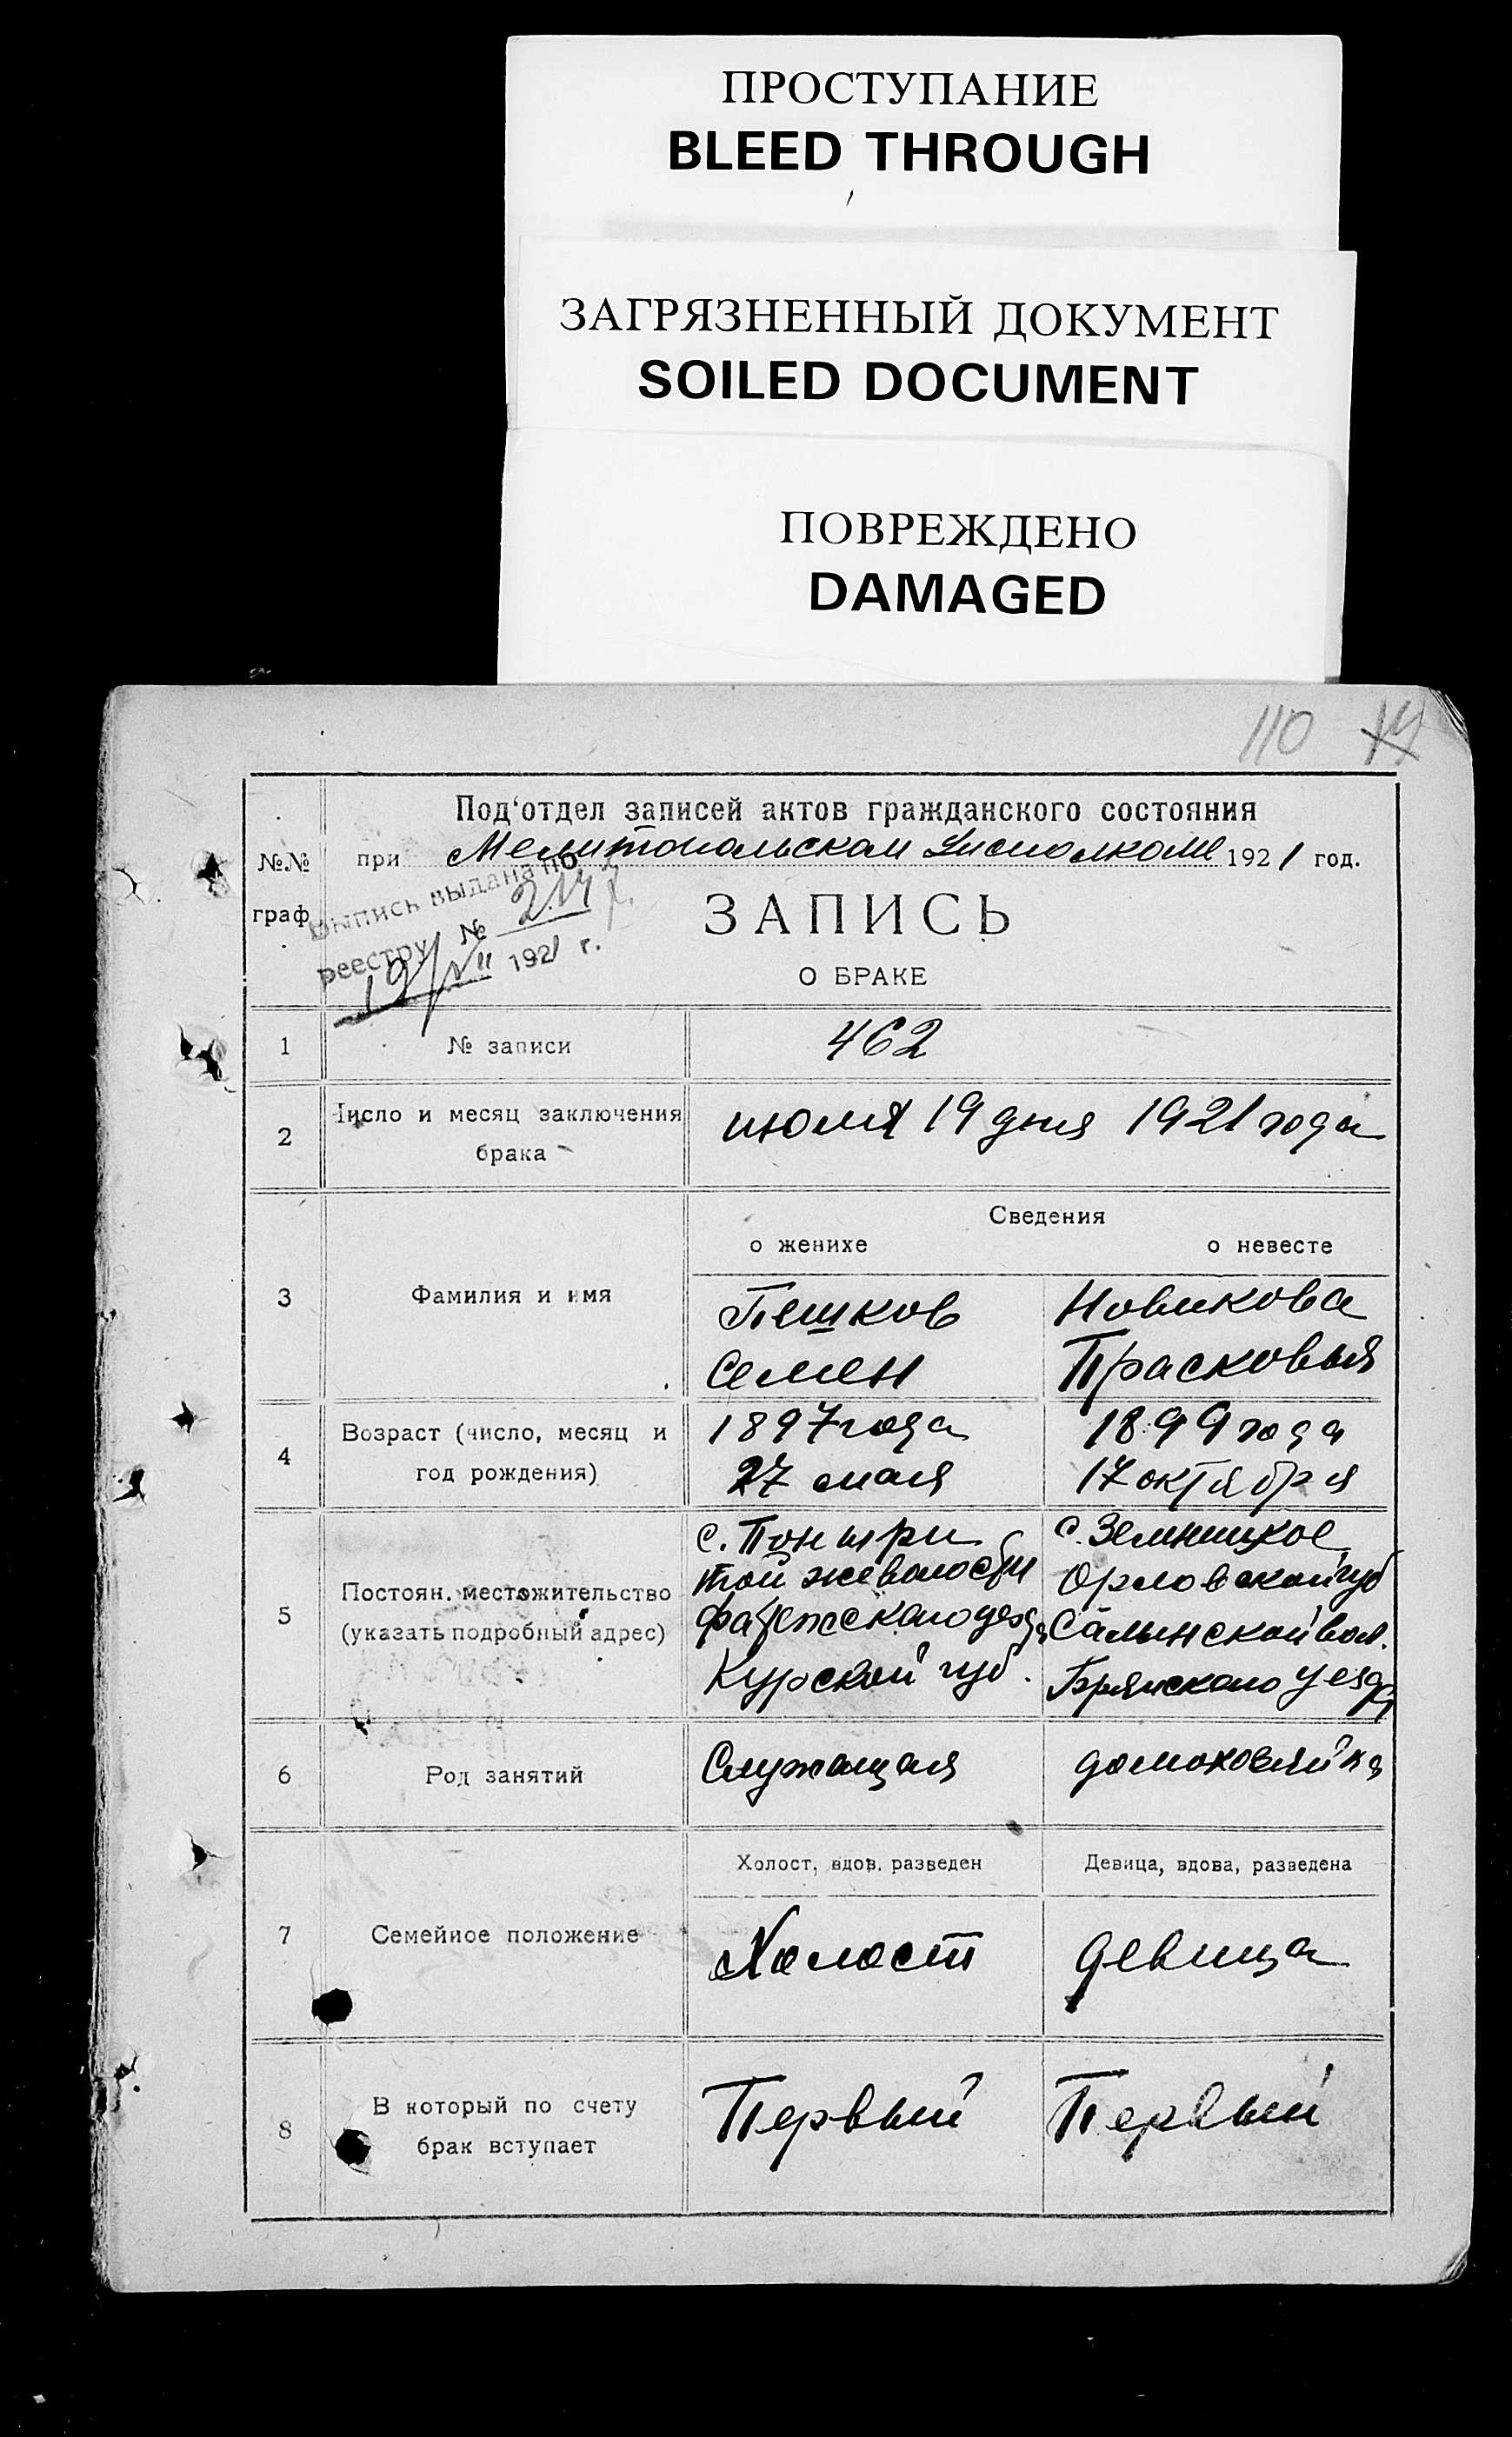 ПРОСТУПАНИЕ
BLEED THROUGH
ЗАГРЯЗНЕННЫЙ ДОКУМЕНТ
SOILED DOCUMENT
ПОВРЕЖДЕНО
DAMAGED
110
Под'отдел записей актов гражданского состояния
№№ граф
при Мелитопольском Уисполкоме 1921 год.
Выпись выдана по
реестру № 
19/VII 1921 г.
ЗАПИСЬ
О БРАКЕ
1 № записи 462
2 Число и месяц заключения
брака
июля 19 дня 1921 года
Сведения
о женихе о невесте
3 Фамилия и имя
Пешков Новикова
Семен Прасковья
4 Возраст (число, месяц и
год рождения)
1897 года 1899 года
27 мая 17 октября
5 Постоян. местожительство
(указать подробный адрес)
с. Поныри
той же волости
Фатежского уезда
Курской губ.
с.
Орловской губ
вол.
Брянского уезда
6 Род занятий
Служащая домохозяйка
Холост, вдов, разведен Девица, вдова, разведена
7 Семейное положение
Холост девица
8 В который по счету
брак вступает
Первый Первый